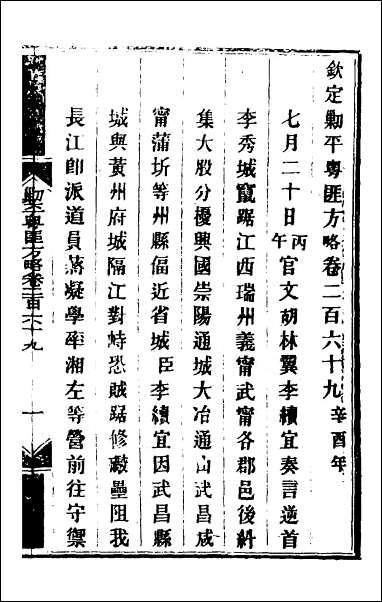 欽定勦平粵匪方略卷二百六十九 辛酉年
七月二十日丙午官文胡林翼李續宜奏言逆首
李秀城竄踞江西瑞州義甯武甯各郡邑後糾
集大股分擾興國崇陽通城大冶通山武昌咸
甯蒲圻等州縣偪近省城臣李續宜因武昌縣
城與黃州府城隔江對峙恐賊踞修礮壘阻我
長江卽派道員蔣凝學率湘左等營前往守禦
勦平粵匪方略卷二百六十九
一